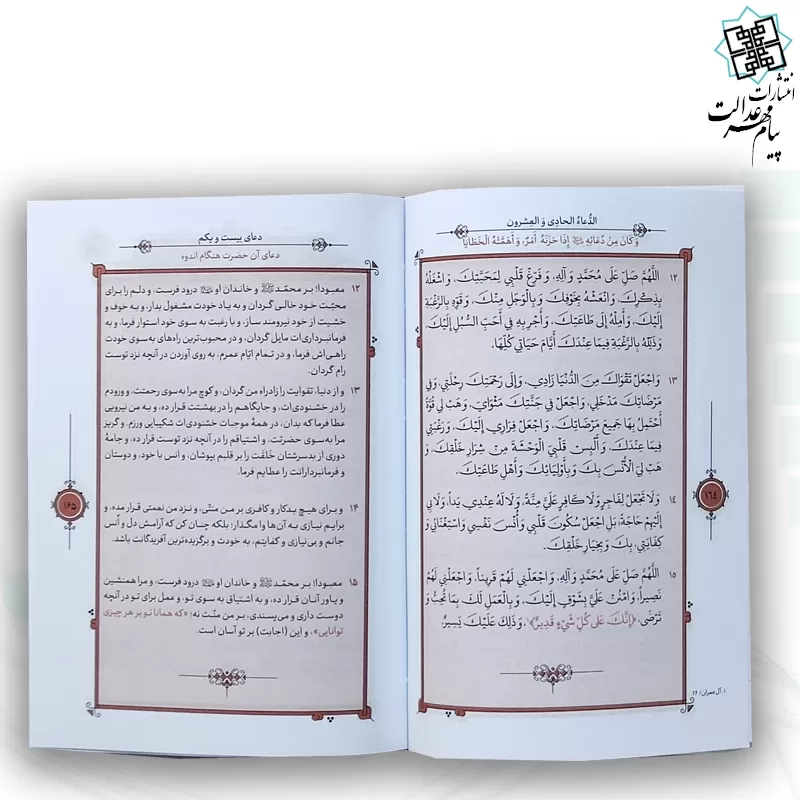 انتشارات
پیام مهر عدالت
الدُّعاءُ الحادِی وَ العِشرون
وَ كَانَ مِنْ دُعَائِهِ ﷺ إِذَا حَزَنَهُ أَمْرٌ، وَ أَهَمَّتْهُ الْخَطَايَا
۱۲ اللَّهُمَّ صَلِّ عَلَى مُحَمَّدٍ وَ آلِهِ، وَ فَرِّغْ قَلْبِي لِمَحَبَّتِكَ، وَ اشْغَلْهُ
بِذِكْرِكَ، وَ انْعَشْهُ بِخَوْفِكَ وَ بِالْوَجَلِ مِنْكَ، وَ قَوِّهِ بِالرَّغْبَةِ
إِلَيْكَ، وَ أَمِلْهُ إِلَى طَاعَتِكَ، وَ أَجْرِ بِهِ فِي أَحَبِّ السُّبُلِ إِلَيْكَ،
وَ ذَلِّلْهُ بِالرَّغْبَةِ فِيمَا عِنْدَكَ أَيَّامَ حَيَاتِي كُلِّهَا.
۱۳ وَ اجْعَلْ تَقْوَاكَ مِنَ الدُّنْيَا زَادِي، وَ إِلَى رَحْمَتِكَ رِحْلَتِي، وَ فِي
مَرْضَاتِكَ مَدْخَلِي، وَ اجْعَلْ فِي جَنَّتِكَ مَثْوَايَ، وَ هَبْ لِي قُوَّةً
أَحْتَمِلُ بِهَا جَمِيعَ مَرْضَاتِكَ، وَ اجْعَلْ فِرَارِي إِلَيْكَ، وَ رَغْبَتِي
فِيمَا عِنْدَكَ، وَ أَلْبِسْ قَلْبِيَ الْوَحْشَةَ مِنْ شِرَارِ خَلْقِكَ، وَ
هَبْ لِيَ الْأُنْسَ بِكَ وَ بِأَوْلِيَائِكَ وَ أَهْلِ طَاعَتِكَ.
۱۴ وَ لَا تَجْعَلْ لِفَاجِرٍ وَ لَا كَافِرٍ عَلَيَّ مِنَّةً، وَ لَا لَهُ عِنْدِي يَداً، وَ لَا بِي
إِلَيْهِمْ حَاجَةً، بَلِ اجْعَلْ سُكُونَ قَلْبِي وَ أُنْسَ نَفْسِي وَ اسْتِغْنَائِي وَ
كِفَايَتِي بِكَ وَ بِخِيَارِ خَلْقِكَ.
۱۵ اللَّهُمَّ صَلِّ عَلَى مُحَمَّدٍ وَ آلِهِ، وَ اجْعَلْنِي لَهُمْ قَرِيناً، وَ اجْعَلْنِي لَهُمْ
نَصِيراً، وَ امْنُنْ عَلَيَّ بِشَوْقٍ إِلَيْكَ، وَ بِالْعَمَلِ لَكَ بِمَا تُحِبُّ وَ
تَرْضَى، ﴿إِنَّكَ عَلى كُلِّ شَيْءٍ قَدِيرٌ﴾¹، وَ ذَلِكَ عَلَيْكَ يَسِيرٌ.
۱. آل عمران / ۲۶
۱۶۴
دعای بیست و یکم
دعای آن حضرت هنگام اندوه
۱۲ معبودا! بر محمّد ﷺ و خاندان او ﷺ درود فرست، و دلم را برای
محبّت خود خالی گردان و به یاد خودت مشغول بدار، و به خوف و
خشیت از خود نیرومند ساز، و با رغبت به سوی خود استوار فرما، و به
فرمانبرداری‌ات مایل گردان، و در محبوب‌ترین راه‌های به‌سوی خودت
راهی‌اش فرما، و در تمام ایّام عمرم، به روی آوردن در آنچه نزد توست
رام گردان.
۱۳ و از دنیا، تقوایت را زادراه من گردان، و کوچ مرا به‌سوی رحمتت، و ورودم
را در خشنودی‌ات، و جایگاهم را در بهشتت قرار ده، و به من نیرویی
عطا فرما که بدان، در همهٔ موجبات خشنودی‌ات شکیبایی ورزم. و گریز
مرا به‌سوی حضرتت، و اشتیاقم را در آنچه نزد توست قرار ده، و جامهٔ
دوری از بدسرشتان خَلقَت را بر قلبم بپوشان، و انس با خود، و دوستان
و فرمانبردارانت را عطایم فرما.
۱۴ و برای هیچ بدکار و کافری بر من منّتی، و نزد من نعمتی قرار مده، و
برایم نیازی به آن‌ها وا مگذار؛ بلکه چنان کن که آرامش دل و اُنس
جانم و بی‌نیازی و کفایتم، به خودت و برگزیده‌ترین آفریدگانت باشد.
۱۵ معبودا! بر محمّد ﷺ و خاندان او ﷺ درود فرست، و مرا همنشین
و یاور آنان قرار ده، و به اشتیاق به سوی تو، و عمل برای تو در آنچه
دوست داری و می‌پسندی، بر من منّت نه؛ «که همانا تو بر هر چیزی
توانایی»، و این (اجابت) بر تو آسان است.
۱۶۵